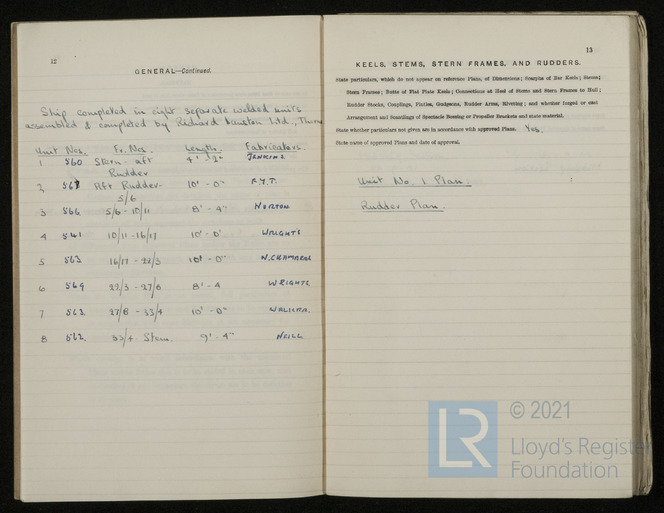 12
GENERAL—Continued.
Ship completed in eight separate welded units
assembled & completed by Richard Dunston Ltd., Thorne
Unit Nos. Fr. Nos. Length. Fabricators.
1 560 Stern - aft Rudder 4' - 2" JENKINS.
2 Aft Rudder - 5/6 10' - 0" F.Y.T.
3 566 5/6 - 10/11 8' - 4" NORTON
4 541 10/11 - 16/17 10' - 0" WRIGHTS
5 563 16/17 - 22/3 10' - 0" N.CHAMBERS
6 569 22/3 - 27/8 8' - 4 WRIGHTS
7 563. 27/8 - 33/4 10' - 0"
8 562. 33/4 9' - 4" NEILL
13
KEELS, STEMS, STERN FRAMES, AND RUDDERS.
State particulars, which do not appear on reference Plans, of Dimensions; Scarphs of Bar Keels; Stems;
Stern Frames; Butts of Flat Plate Keels; Connections at Heel of Stems and Stern Frames to Hull;
Rudder Stocks, Couplings, Pintles, Gudgeons, Rudder Arms, Riveting; and whether forged or cast
Arrangement and Scantlings of Spectacle Bossing or Propeller Brackets and state material.
State whether particulars not given are in accordance with approved Plans. Yes.
State name of approved Plans and date of approval.
Unit No. 1 Plan.
Rudder Plan.
LR
© 2021
Lloyd's Register
Foundation